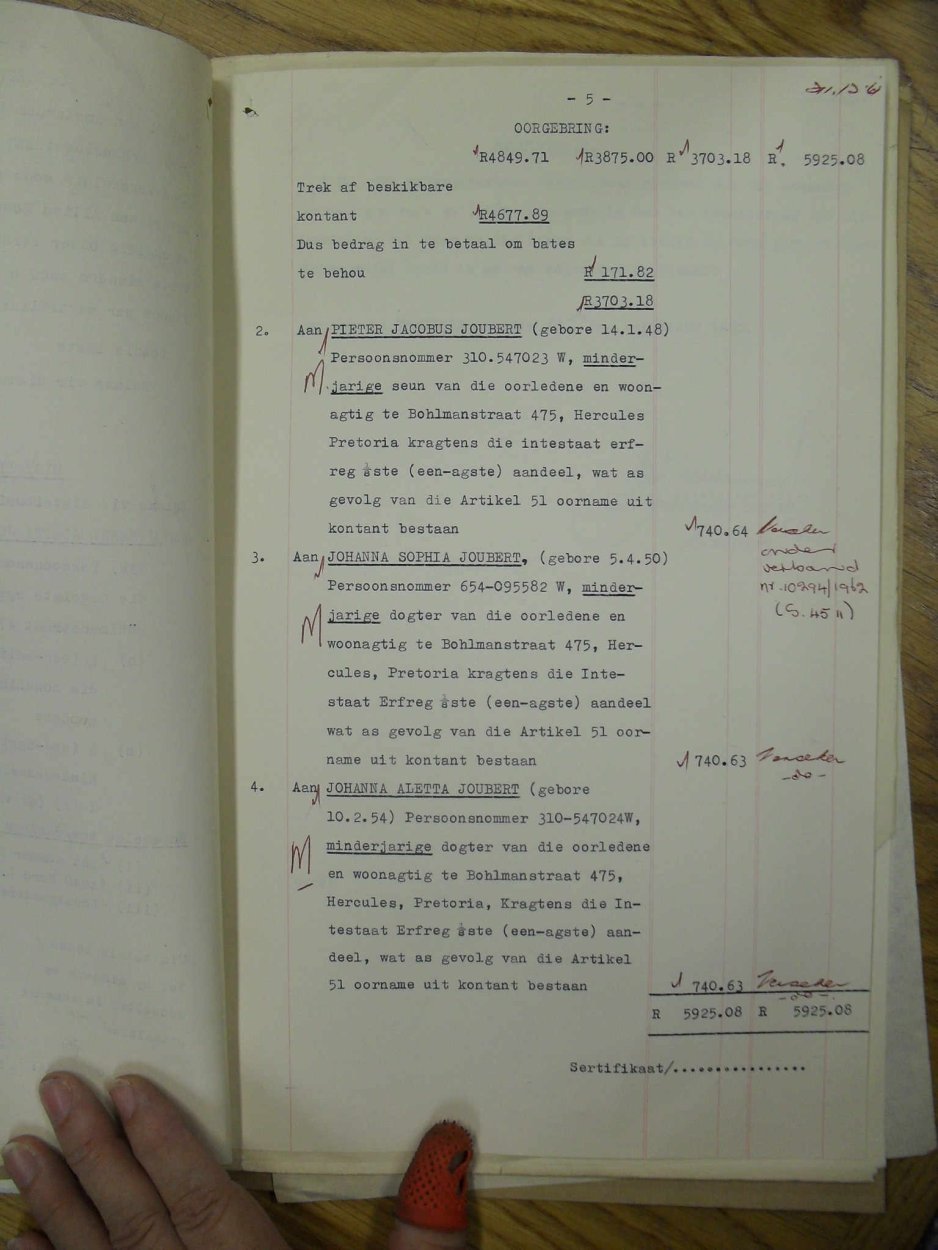 - 5 -
OORGEBRING:
R4849.71 R3875.00 R 3703.18 R. 5925.08
Trek af beskikbare
kontant R4677.89
Dus bedrag in te betaal om bates
te behou R 171.82
R3703.18
2. Aan PIETER JACOBUS JOUBERT (gebore 14.1.48)
Persoonsnommer 310.547023 W, minder-
M jarige seun van die oorledene en woon-
agtig te Bohlmanstraat 475, Hercules
Pretoria kragtens die intestaat erf-
reg ⅛ste (een-agste) aandeel, wat as
gevolg van die Artikel 51 oorname uit
kontant bestaan 740.64 Verseker
onder
verband
nr. 10294/1962
(S. 45 II)
3. Aan JOHANNA SOPHIA JOUBERT, (gebore 5.4.50)
Persoonsnommer 654-095582 W, minder-
M jarige dogter van die oorledene en
woonagtig te Bohlmanstraat 475, Her-
cules, Pretoria kragtens die Inte-
staat Erfreg ⅛ste (een-agste) aandeel
wat as gevolg van die Artikel 51 oor-
name uit kontant bestaan 740.63 Verseker
-do-
4. Aan JOHANNA ALETTA JOUBERT (gebore
10.2.54) Persoonsnommer 310-547024W,
M minderjarige dogter van die oorledene
en woonagtig te Bohlmanstraat 475,
Hercules, Pretoria, Kragtens die In-
testaat Erfreg ⅛ste (een-agste) aan-
deel, wat as gevolg van die Artikel
51 oorname uit kontant bestaan 740.63 Verseker
-do-
R 5925.08 R 5925.08
Sertifikaat/.................